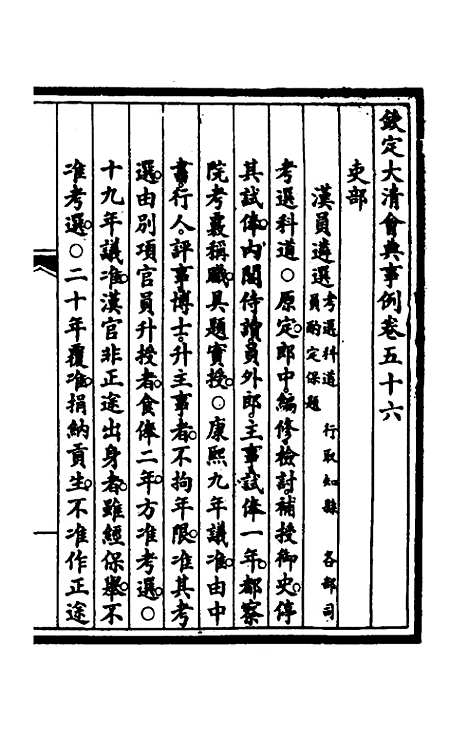 欽定大清會典事例卷五十六
吏部
漢員遴選 考選科道 行取知縣 各部司員酌定保題
考選科道○原定郎中編修檢討補授御史停
其試俸內閣侍讀員外郎主事試俸一年都察
院考覈稱職具題實授○康熙九年議准由中
書行人評事博士升主事者不拘年限准其考
選由別項官員升授者食俸二年方准考選○
十九年議准漢官非正途出身者雖經保舉不
准考選○二十年覆准捐納貢生不准作正途